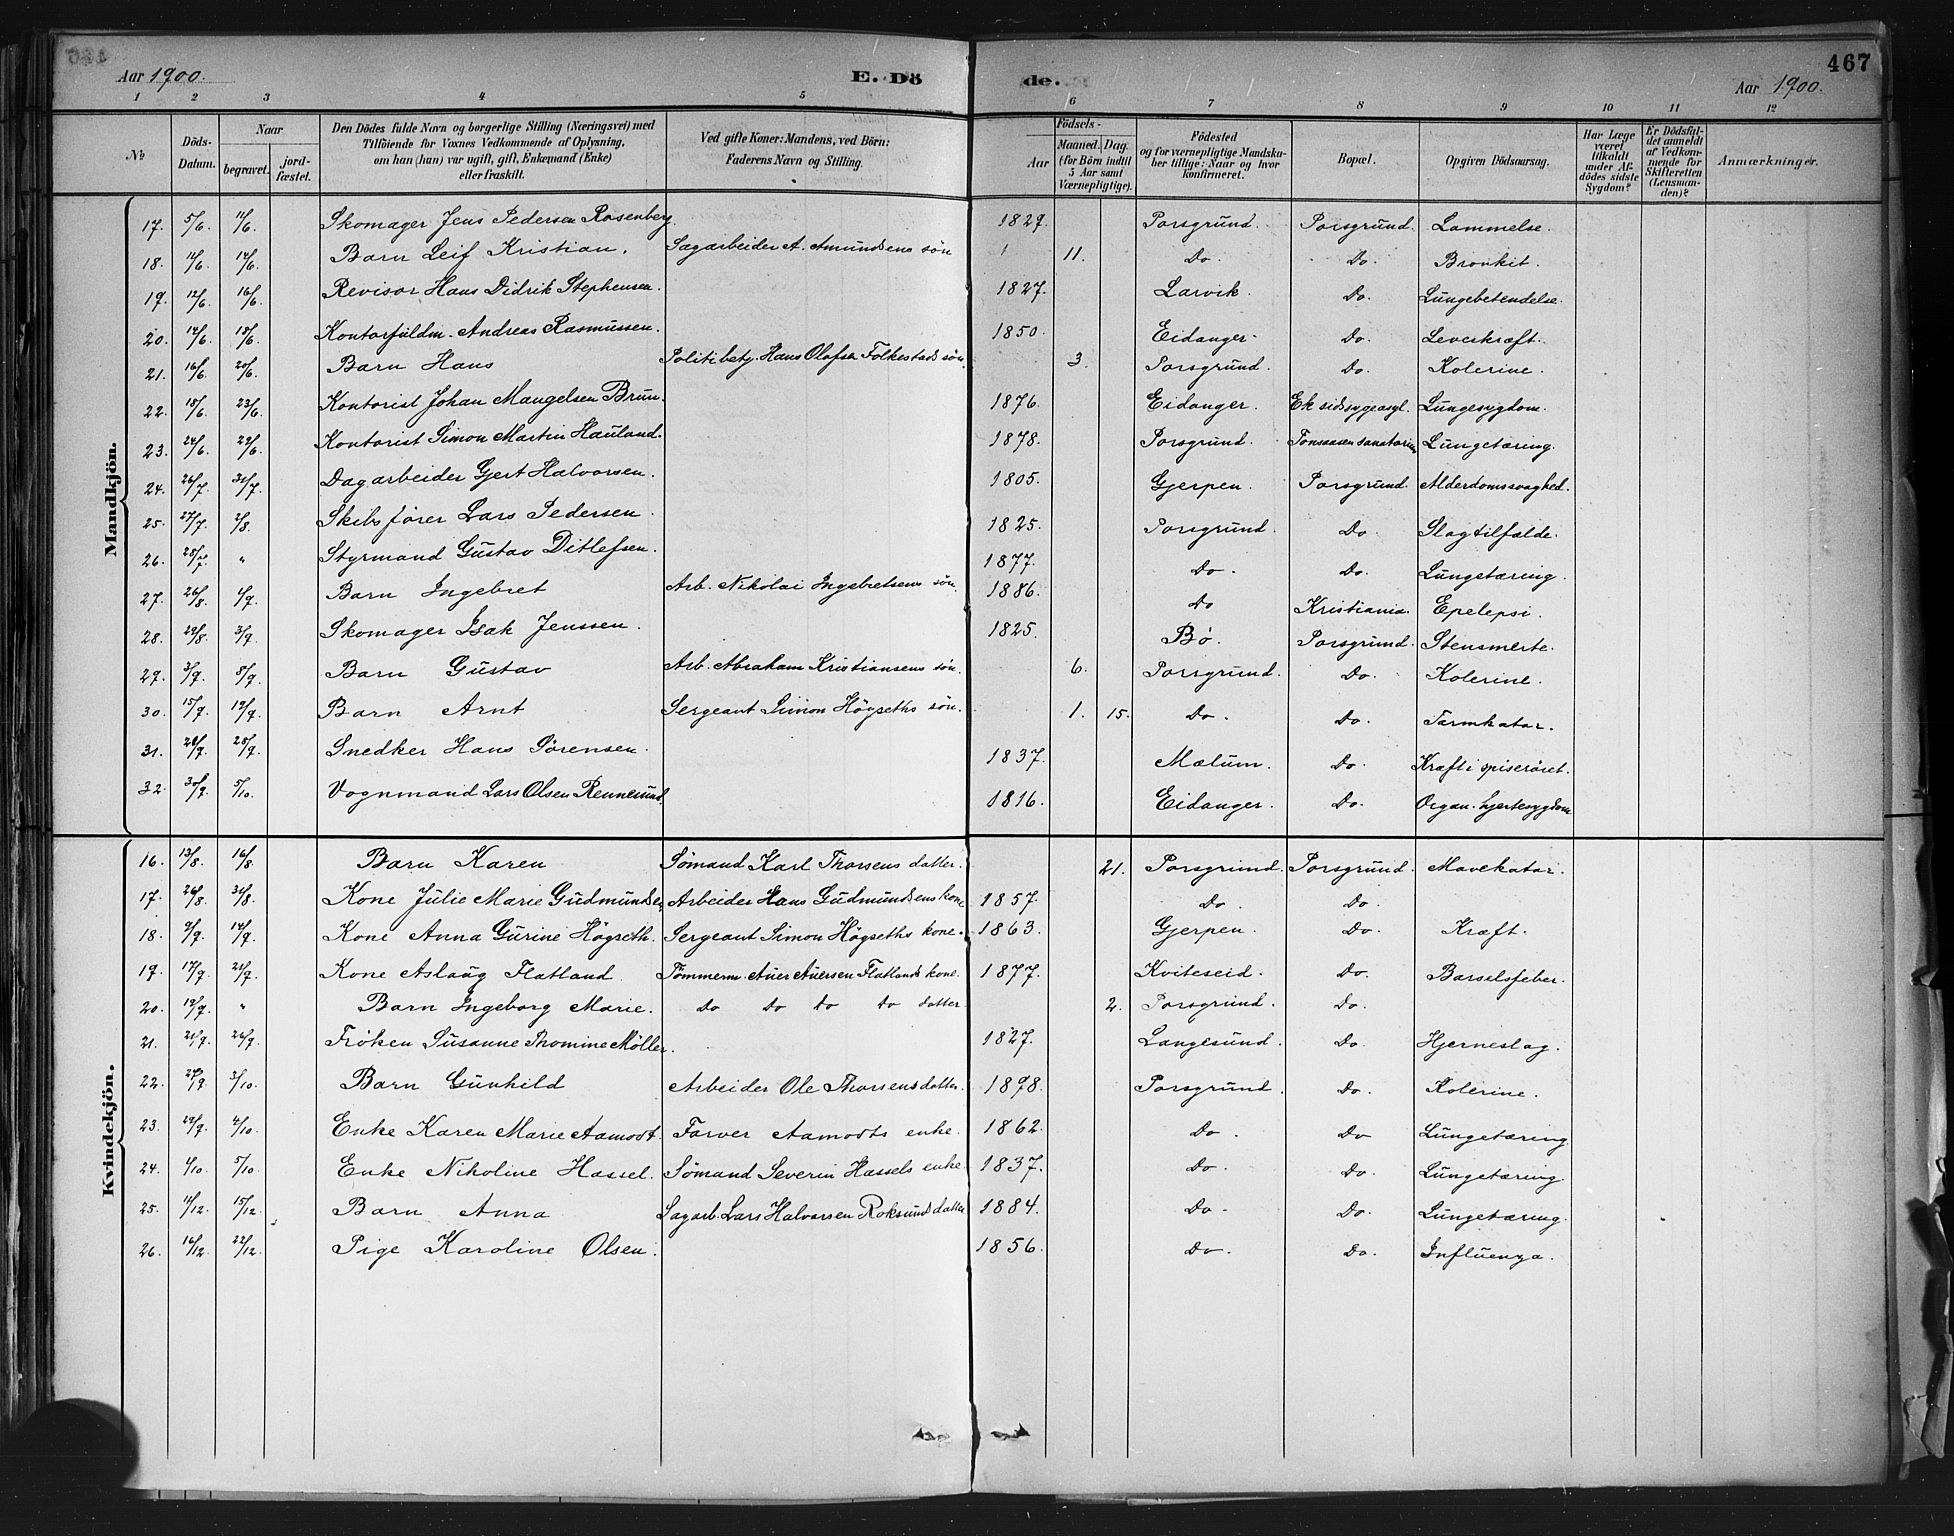 Aar 1900. E. Dö de. Aar 1900. 467
1 2 3 4 5 6 7 8 9 10 11 12
No
Döds-Datum.
Naar
begravet.
jord-fæstet.
Den Dödes fulde Navn og borgerlige Stilling (Næringsvei) med
Tilföiende for Voxnes Vedkommende af Oplysning,
om han (hun) var ugift, gift, Enkemand (Enke)
eller fraskilt.
Ved gifte Koner: Mandens, ved Börn:
Faderens Navn og Stilling.
Födsels-
Aar
Maaned. Dag.
(for Börn indtil
5 Aar samt
Værnepligtige).
Födested
og for værnepligtige Mandska-
ber tillige: Naar og hvor
konfirmeret.
Bopæl.
Opgiven Dödsaarsag.
Har Læge
været
tilkaldt
under Af-
dödes sidste
Sygdom?
Er Dödsfal-
det anmeldt
af Vedkom-
mende for
Skifteretten
(Lensman-
den)?
Anmærkninger.
Mandkjön.
17. 5/6. 11/6. Skomager Jens Pedersen Rosenberg 1829. Porsgrund. Porsgrund. Lammelse.
18. 11/6. 14/6. Barn Leif Kristian. Sagarbeider A. Amundsens søn 1 11. Do. Do. Bronkit.
19. 12/6. 16/6. Revisor Hans Didrik Stephensen. 1827. Larvik. Do. Lungebetendelse.
20. 14/6. 18/6. Kontorfuldm. Andreas Rasmussen. 1850. Eidanger. Do. Leverkræft.
21. 16/6. 20/6. Barn Hans Politibetj. Hans Olafsen Folkestads søn. 3. Porsgrund. Do. Kolerine.
22. 18/6. 23/6. Kontorist Johan Mangelsen Brun. 1876. Eidanger. Ek sidssygeasyl. Lungesygdom.
23. 24/6. 29/6. Kontorist Simon Martin Hauland. 1878. Porsgrund. Tonsaasen sanatorium Lungetæring.
24. 26/7. 31/7. Dagarbeider Gjert Halvorsen. 1805. Gjerpen. Porsgrund. Alderdomssvaghed.
25. 27/7. 2/8. Skibsfører Lars Pedersen. 1825. Porsgrund. Do. Slagtilfælde.
26. 28/7. " Styrmand Gustav Ditlefsen. 1877. Do. Do. Lungetæring.
27. 26/8. 4/9. Barn Ingebret Arb. Nikolai Ingebretsens søn. 1886. Do Kristiania. Epelepsi.
28. 29/8. 3/9. Skomager Isak Jenssen. 1825. Bø. Porsgrund. Stensmerte.
29. 3/9. 8/9. Barn Gustav Arb. Abraham Kristiansens søn. 6. Porsgrund. Do. Kolerine.
30. 15/9. 19/9. Barn Arnt Sergeant Simon Högseths søn. 1. 15. Do. Do. Tarmkatar.
31. 20/9. 25/9. Snedker Hans Sørensen. 1837. Mælum. Do. Kræft i spiserøret.
32. 30/9. 5/10. Vognmand Lars Olsen Rennesund. 1816. Eidanger. Do. Organ. hjertesygdom
Kvindekjön.
16. 13/8. 16/8. Barn Karen Sømand Karl Thorsens datter. 21. Porsgrund. Porsgrund. Mavekatar.
17. 26/8. 31/8. Kone Julie Marie Gudmundsen Arbeider Hans Gudmundsens kone 1857. Do. Do.
18. 9/9. 14/9. Kone Anna Gurine Högseth. Sergeant Simon Högseths kone. 1863. Gjerpen. Do. Kræft.
19. 17/9. 21/9. Kone Aslaug Flatland Tømmerm. Auer Auersen Flatlands kone. 1877. Kviteseid. Do. Barselsfeber.
20. 19/9. " Barn Ingeborg Marie. Do Do Do Do datter 2. Porsgrund. Do.
21. 21/9. 26/9. Frøken Susanne Thomine Møller. 1827. Langesund. Do. Hjerneslag.
22. 27/9. 3/10. Barn Gunhild Arbeider Ole Thorsens datter. 1898. Porsgrund. Do. Kolerine.
23. 29/9. 4/10. Enke Karen Marie Aamodt. Farver Aamodts enke. 1862. Do. Do Lungetæring
24. 1/10. 5/10. Enke Nikoline Hassel. Sømand Severin Hassels enke. 1837. Do. Do. Lungetæring.
25. 11/12. 15/12. Barn Anna Sagarb. Lars Halvorsen Roksunds datter 1884. Do. Do. Lungetæring.
26. 16/12. 22/12. Pige Karoline Olsen. 1856. Do. Do. Influenza.